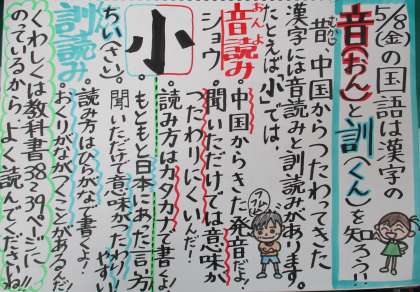 5/8(金)の国語は漢字の
音(おん)と訓(くん)を知ろう!!
昔、中国からつたわってきた
漢字には音読みと訓読みがあります。
たとえば「小」では、
音読み
おんよ
ショウ
・中国からきた発音だよ!
・聞いただけでは意味が
つたわりにくいんだ!
・読み方はカタカナで書くよ!
小
ちい(さい)
訓読み
・もともと日本にあった言い方
・聞いただけで意味がつたわりやすい
・読み方はひらがなで書くよ!
・おくりがながつくことがあるんだ!
くわしくは教科書38~39ページに
のっているから、よく読んでくださいね!!